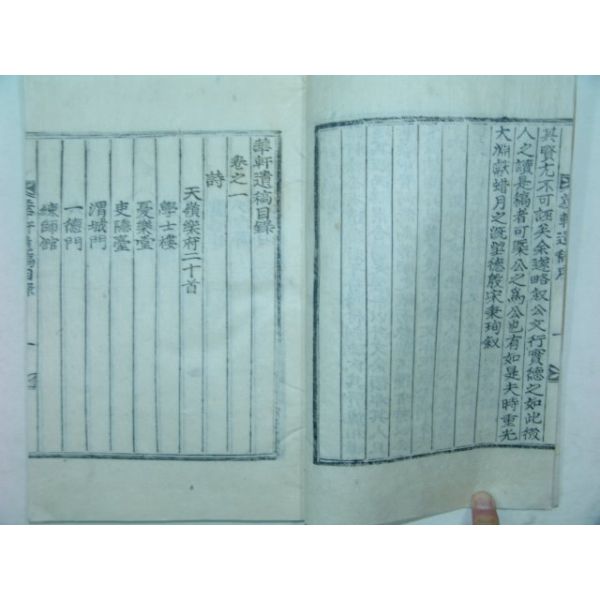 其賢尤不可誣矣余遂略叙公文行實德之如此後
人之讀是稿者可槩公之爲公也有如是夫時重光
大淵獻蜡月之旣望德殷宋秉珣叙
華軒遺稿目錄
卷之一
詩
天嶺樂府二十首
學士樓
憂樂堂
吏隱臺
渭城門
一德門
鍊師館